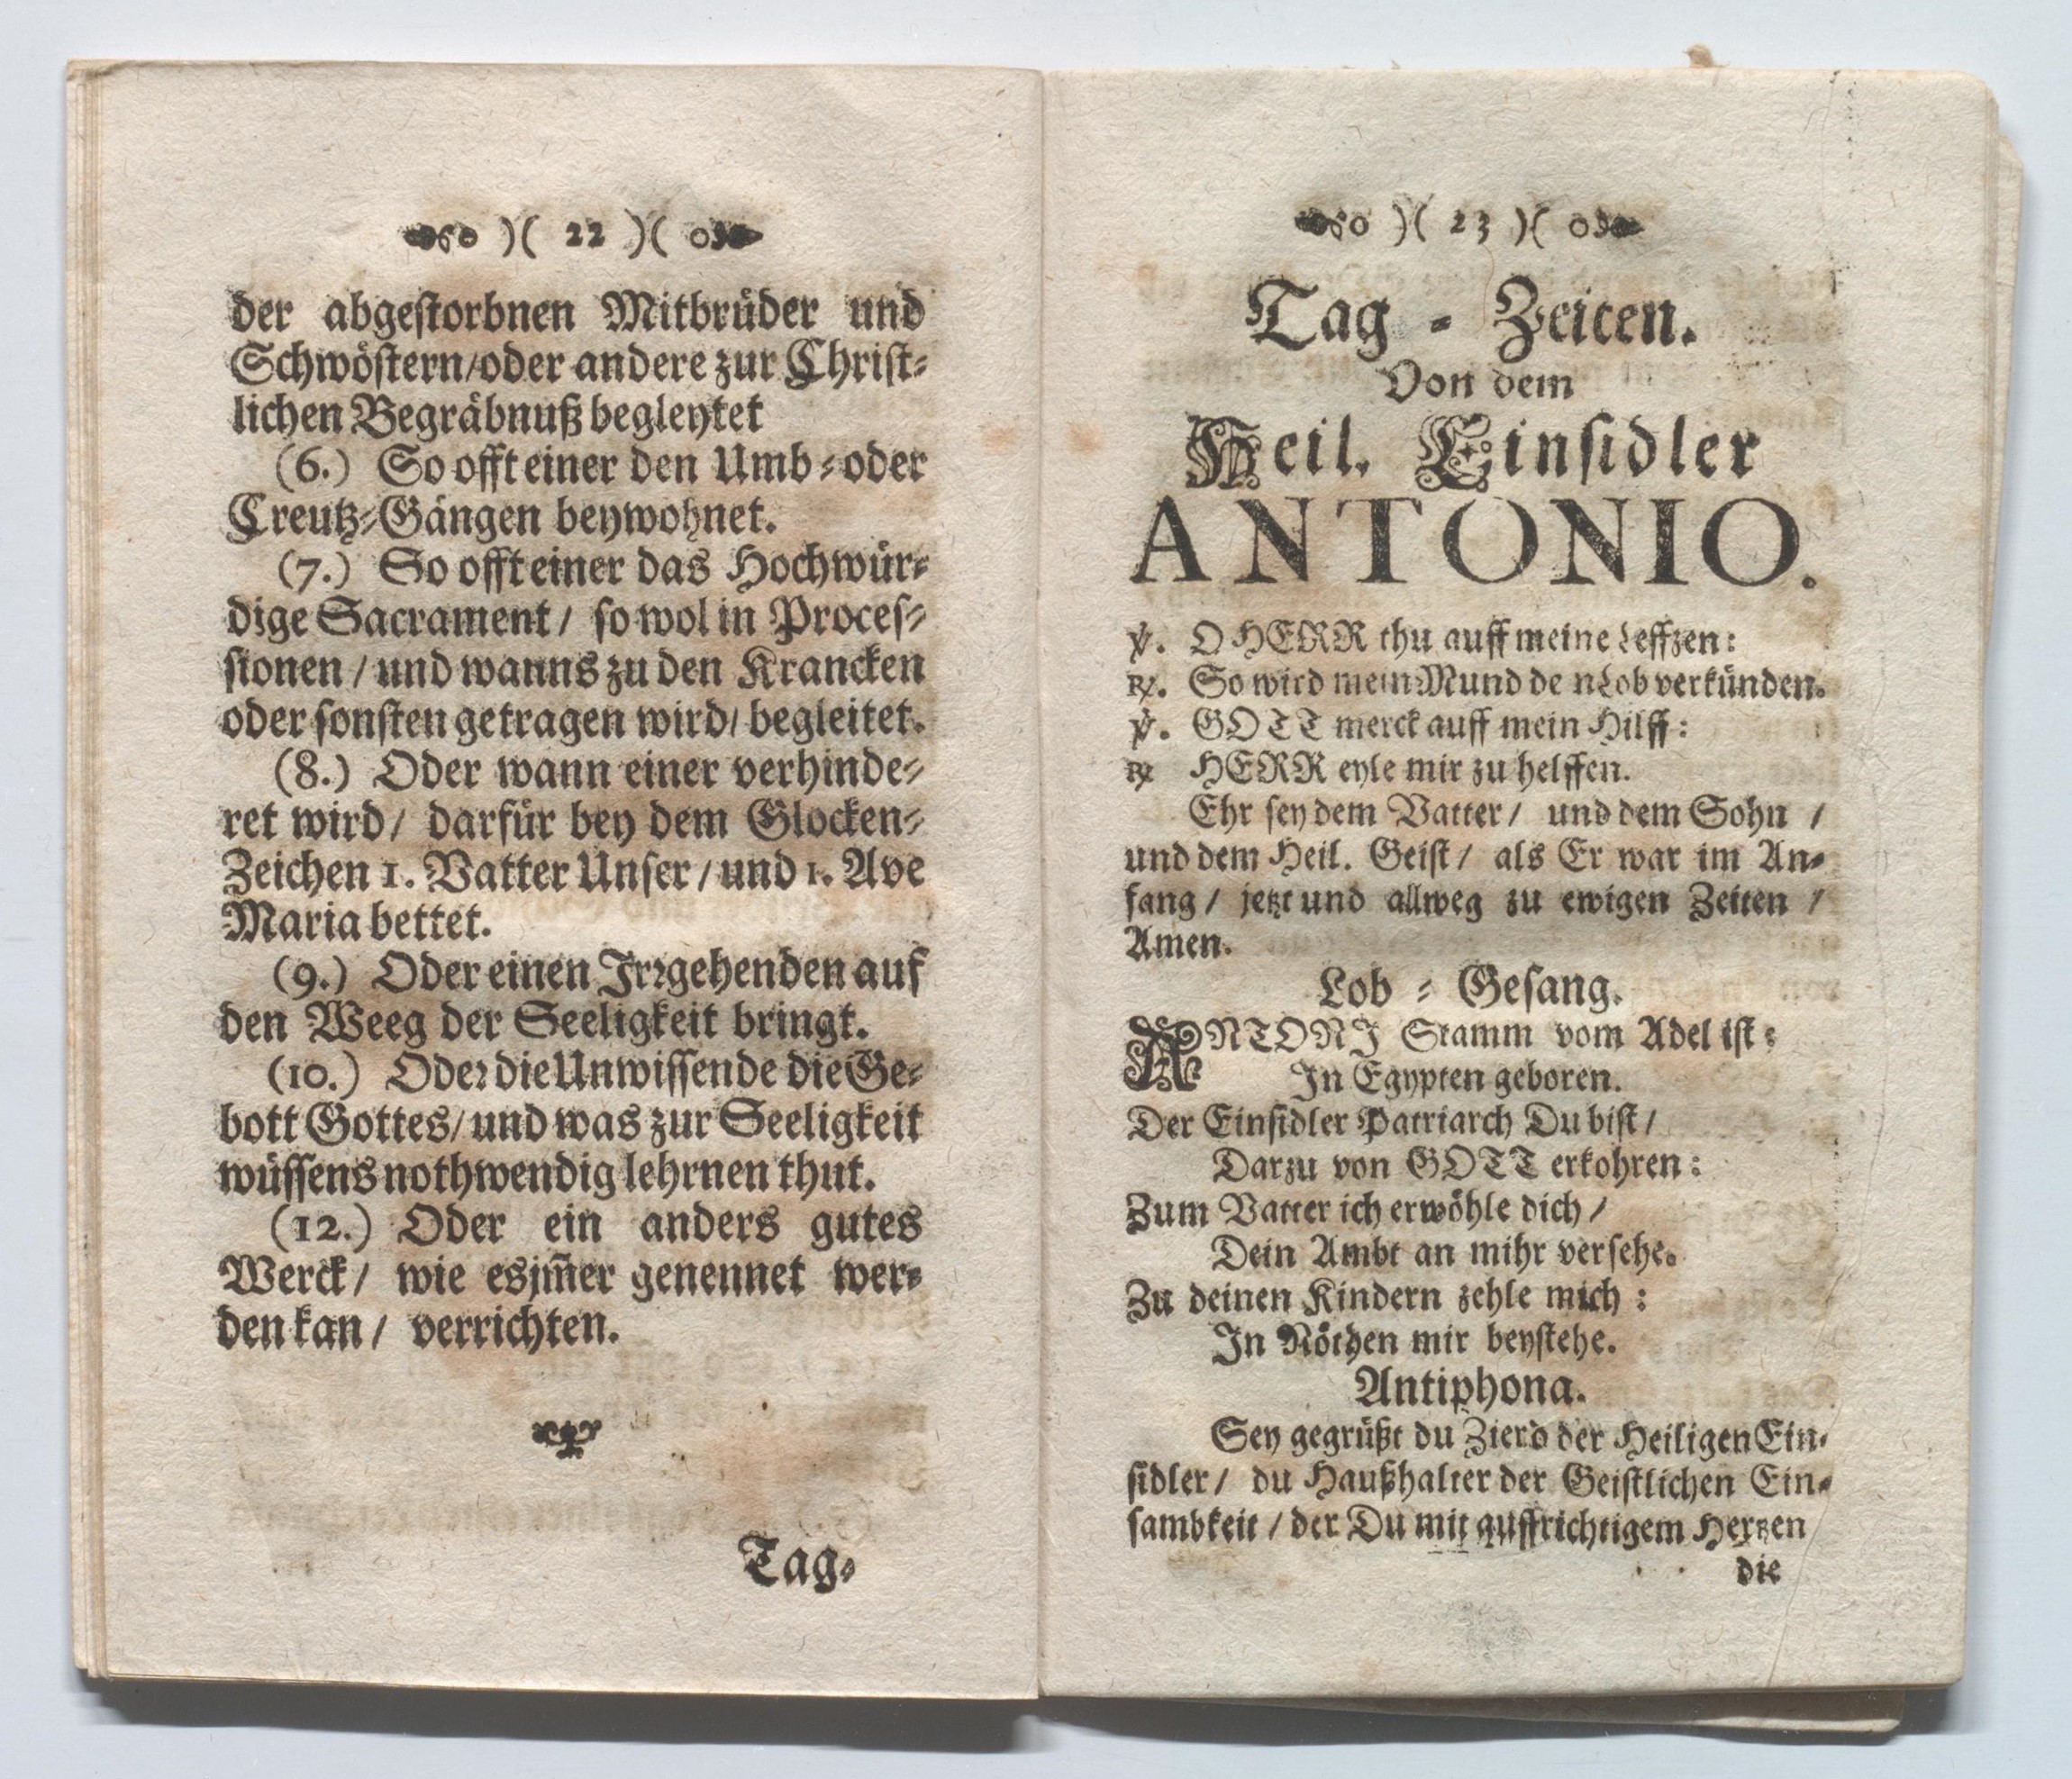 )( 22 )(
der abgestorbnen Mitbrüder und
Schwöstern/oder andere zur Christ-
lichen Begräbnuß begleytet
(6.) So offt einer den Umb-oder
Creutz-Gängen beywohnet.
(7.) So offt einer das Hochwür-
dige Sacrament/ so wol in Proces-
sionen / und wanns zu den Krancken
oder sonsten getragen wird/ begleitet.
(8.) Oder wann einer verhinde-
ret wird/ darfür bey dem Glocken-
Zeichen 1. Vatter Unser / und 1. Ave
Maria bettet.
(9.) Oder einen Irrgehenden auf
den Weeg der Seeligkeit bringt.
(10.) Oder die Unwissende die Ge-
bott Gottes/ und was zur Seeligkeit
wüssens nothwendig lehrnen thut.
(12.) Oder ein anders gutes
Werck/ wie es jm̃er genennet wer-
den kan/ verrichten.
Tag-
)( 23 )(
Tag - Zeiten.
Von dem
Heil. Einsidler
ANTONIO.
℣. O HERR thu auff meine Leffzen:
℟. So wird mein Mund de n Lob verkünden.
℣. GOTT merck auff mein Hilff:
℟ HERR eyle mir zu helffen.
Ehr sey dem Vatter/ und dem Sohn /
und dem Heil. Geist/ als Er war im An-
fang/ jetzt und allweg zu ewigen Zeiten /
Amen.
Lob - Gesang.
ANTONI Stamm vom Adel ist:
In Egypten geboren.
Der Einsidler Patriarch Du bist/
Darzu von GOTT erkohren:
Zum Vatter ich erwöhle dich /
Dein Ambt an mihr versehe.
Zu deinen Kindern zehle mich :
In Nöthen mir beystehe.
Antiphona.
Sey gegrüßt du Zierd der Heiligen Ein-
sidler/ du Haußhalter der Geistlichen Ein-
sambkeit / der Du mit auffrichtigem Hertzen
die